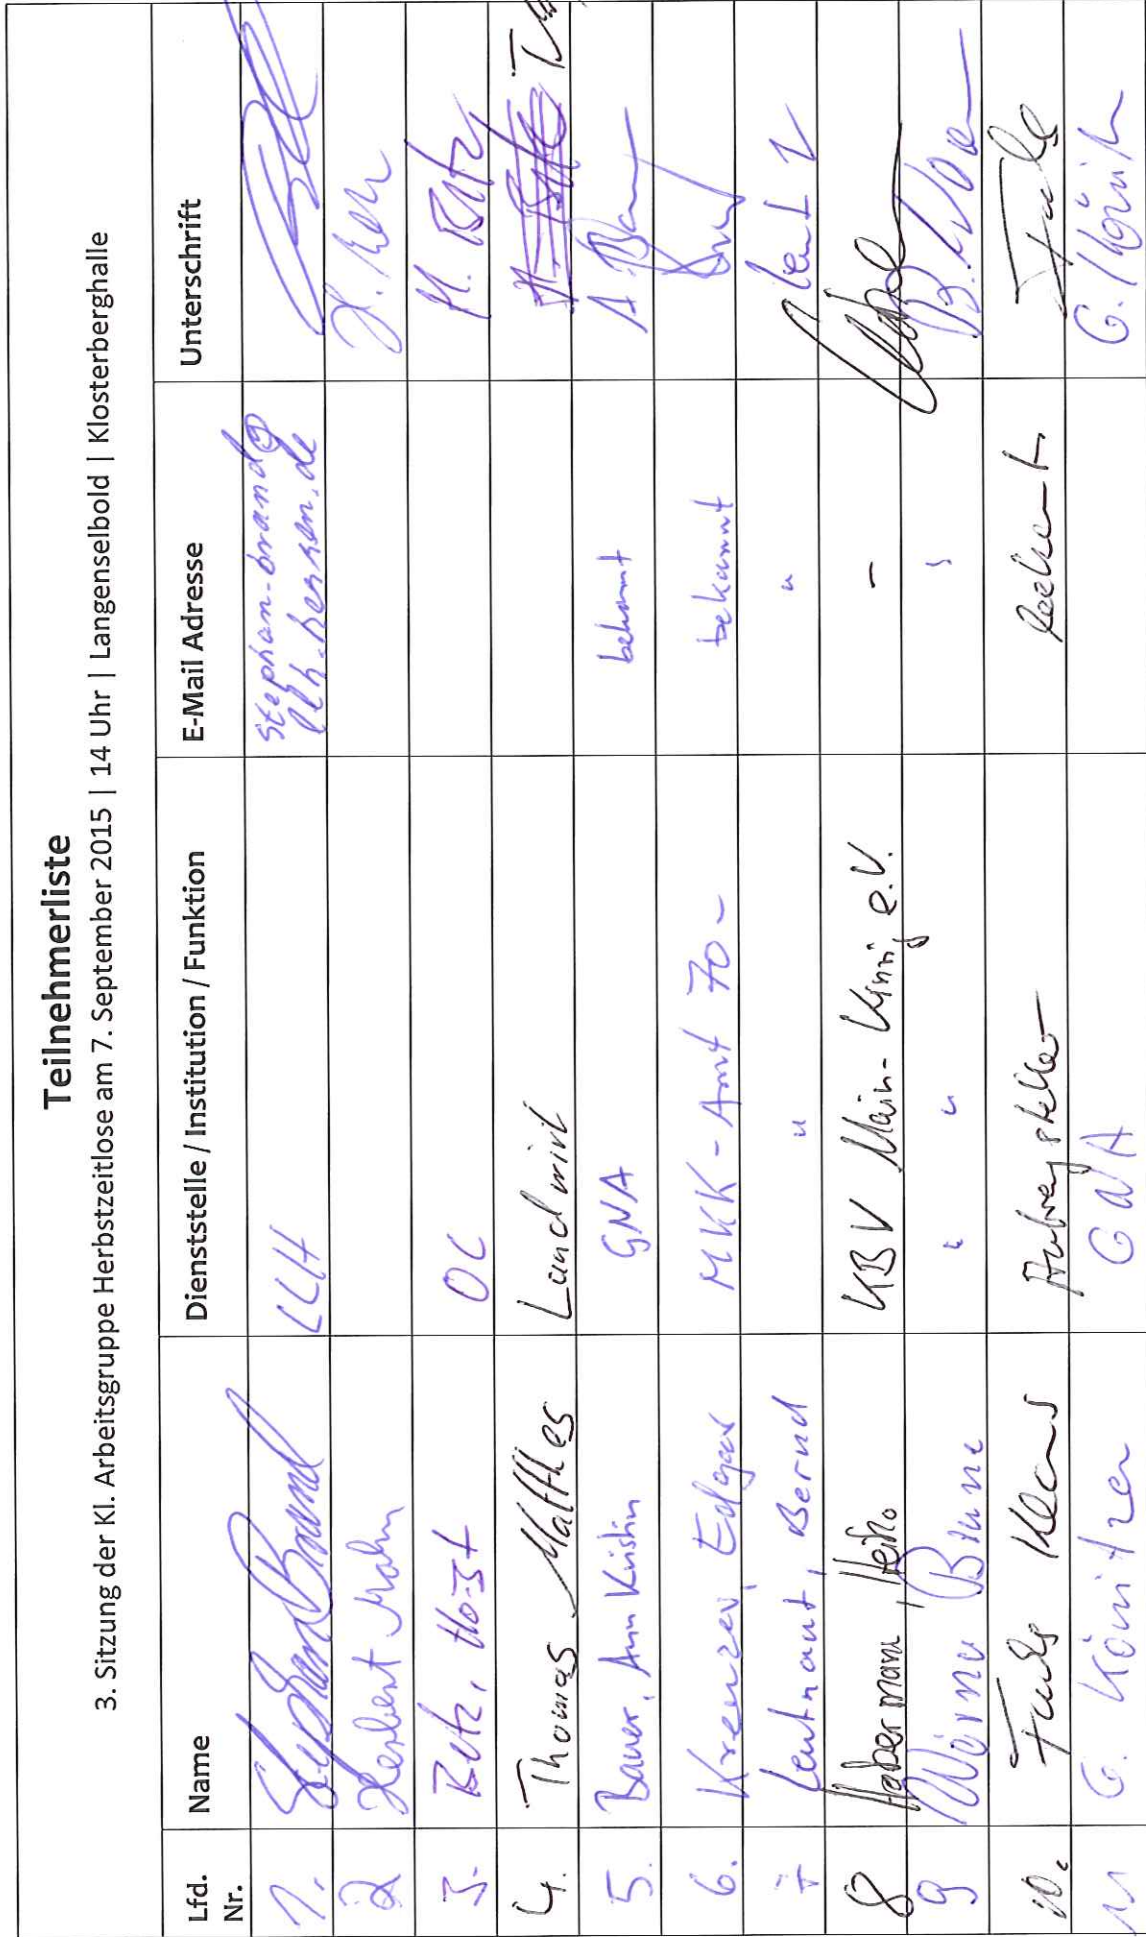 Teilnehmerliste
3. Sitzung der Kl. Arbeitsgruppe Herbstzeitlose am 7. September 2015 | 14 Uhr | Langenselbold | Klosterberghalle
Lfd. Nr. Name Dienststelle / Institution / Funktion E-Mail Adresse Unterschrift
1. Stephan Brand LLH stephan.brand@
llh.hessen.de
2 Herbert
3. Betz, Horst OL H. Betz
4. Thomas Matthes Landwirt
5. Bauer, Ann Kristin GNA bekannt A. Bauer
6. Kreuzer, Edgar MKK - Amt 70 - bekannt
7 Leutnant, Bernd " "
8 Habermann, Heiko KBV Main-Kinzig e.V. -
9 " "
10. Klaus
11 G. Könitzer GNA